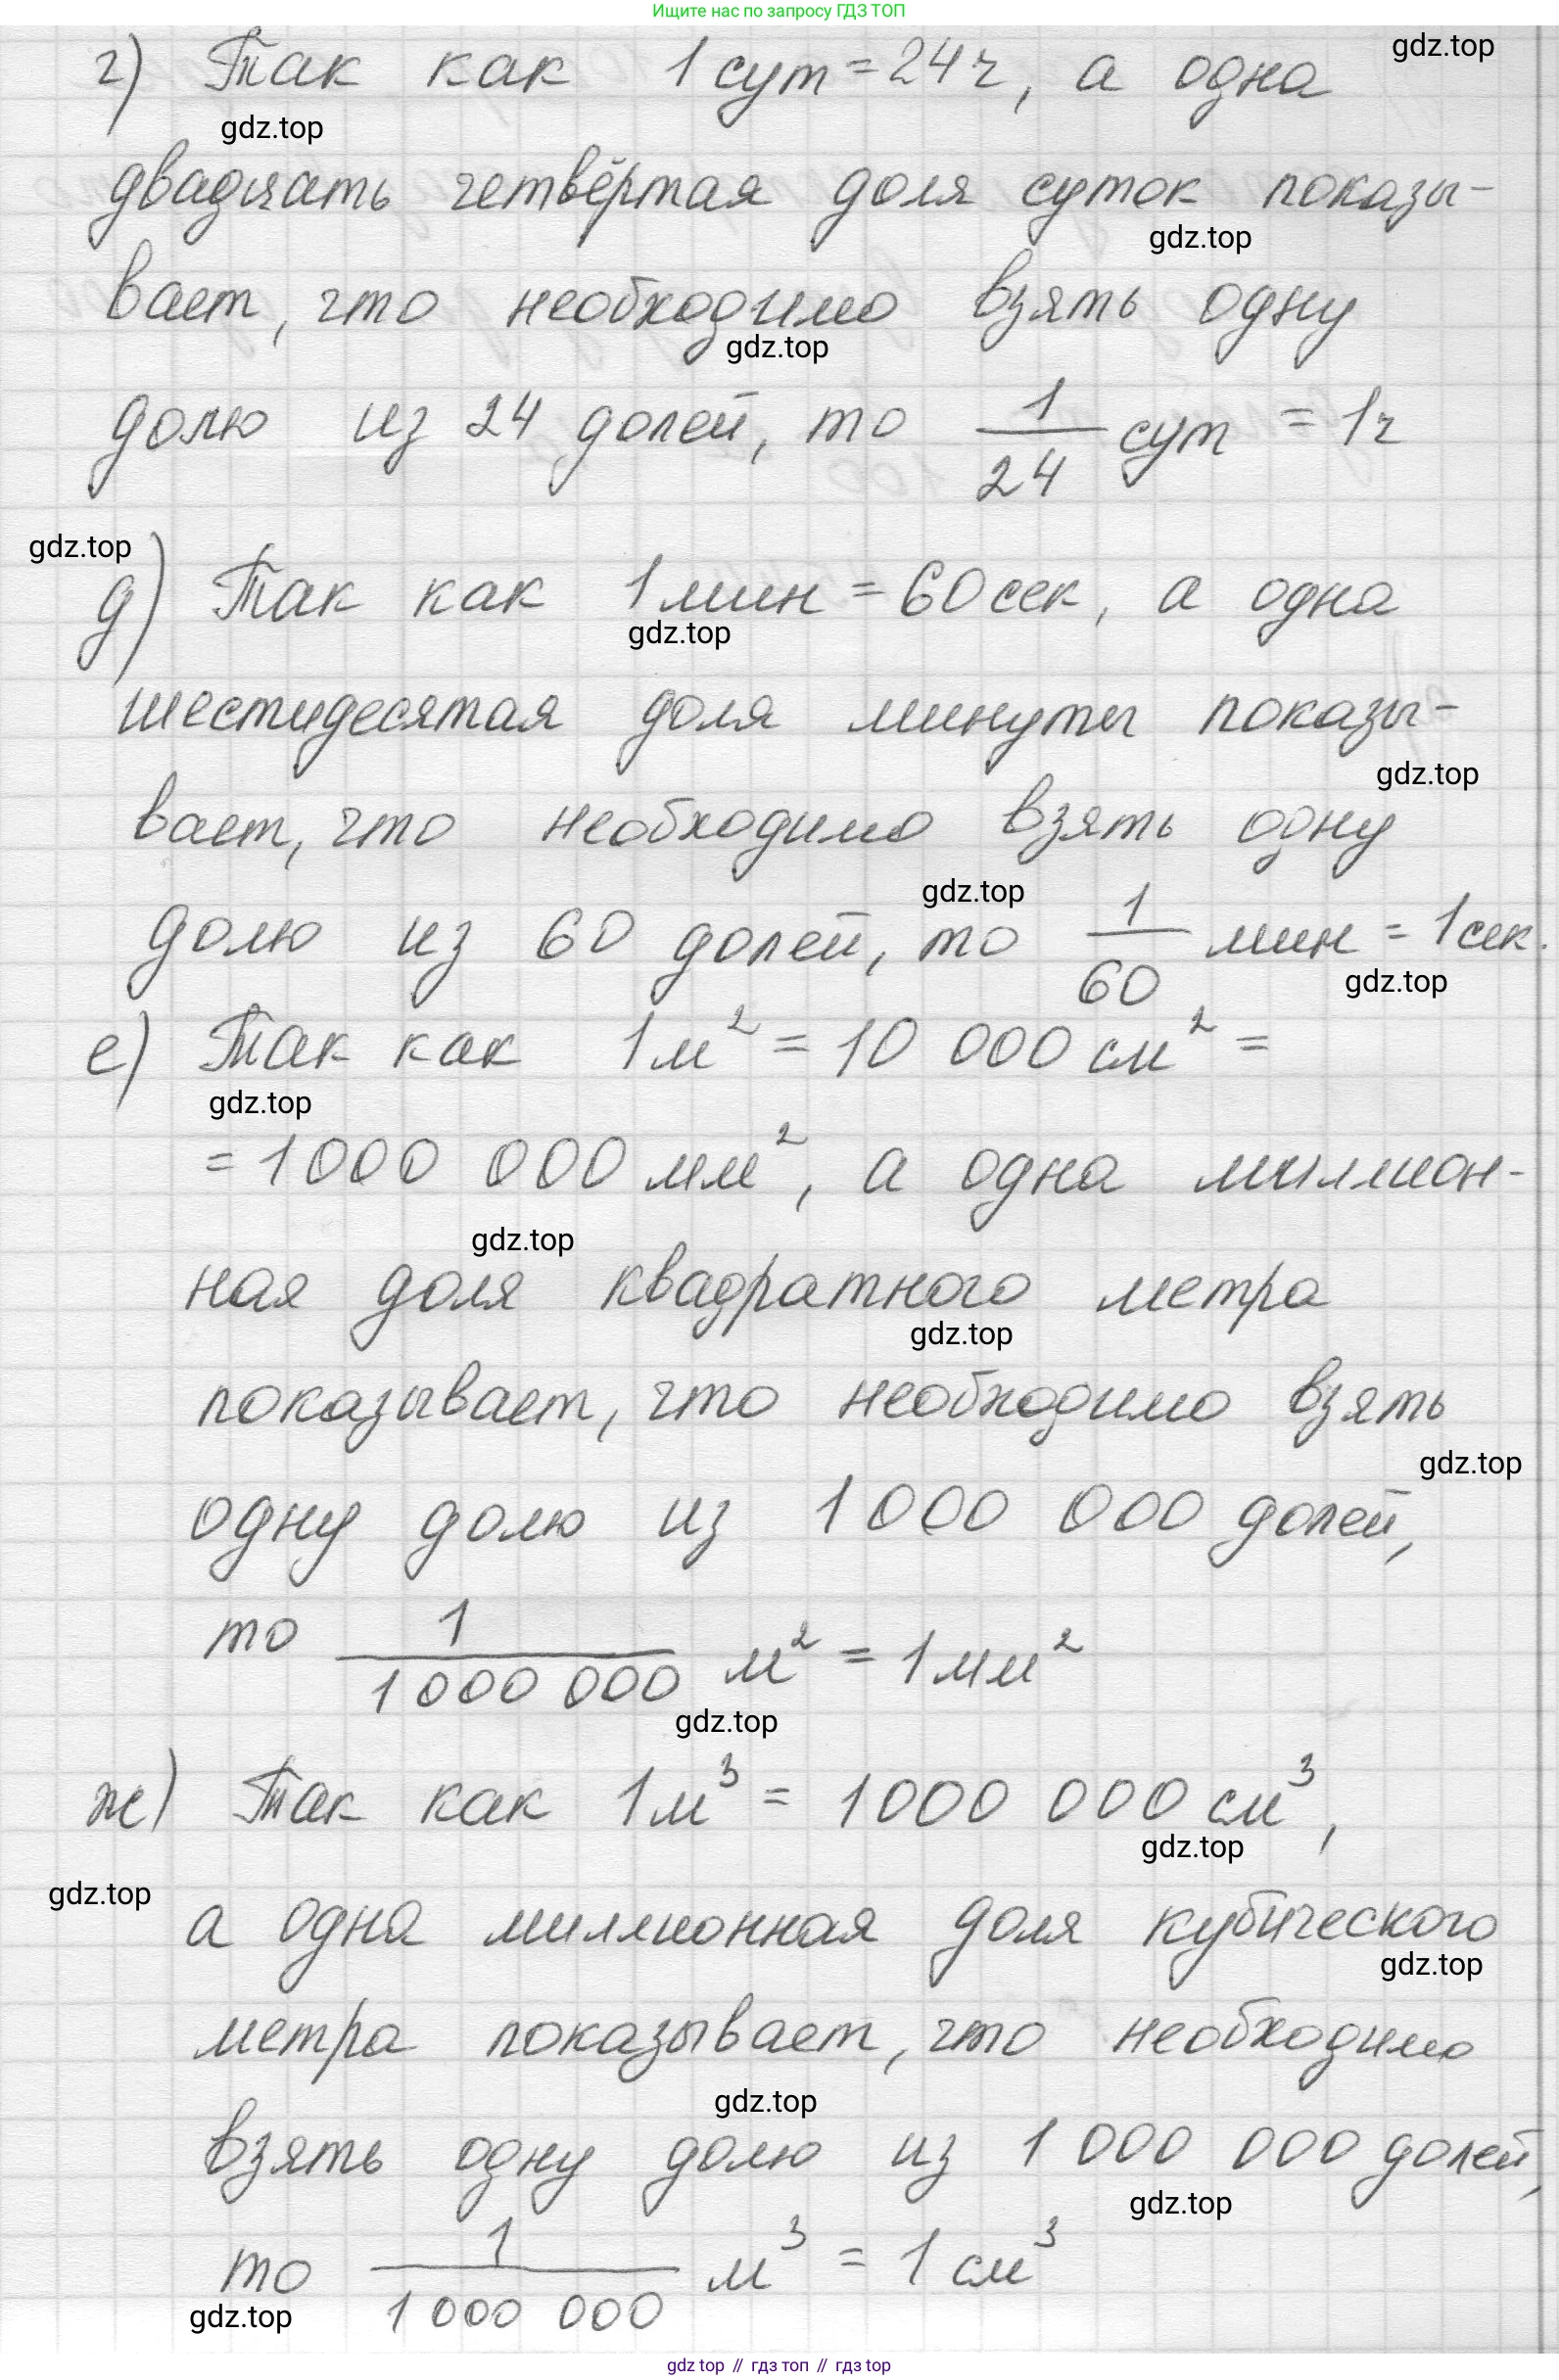 Ищите нас по запросу ГДЗ ТОП
gdz.top
г) Так как 1 сут = 24 ч, а одна
gdz.top
двадцать четвёртая доля суток показы-
gdz.top
вает, что необходимо взять одну
gdz.top
долю из 24 долей, то 1/24 сут = 1ч
gdz.top
д) Так как 1 мин = 60 сек, а одна
gdz.top
шестидесятая доля минуты показы-
gdz.top
вает, что необходимо взять одну
gdz.top
долю из 60 долей, то 1/60 мин = 1 сек.
gdz.top
е) Так как 1 м² = 10 000 см² =
gdz.top
= 1 000 000 мм², а одна миллион-
gdz.top
ная доля квадратного метра
gdz.top
показывает, что необходимо взять
gdz.top
одну долю из 1 000 000 долей,
то 1/1 000 000 м² = 1 мм²
gdz.top
ж) Так как 1 м³ = 1 000 000 см³,
gdz.top
gdz.top
а одна миллионная доля кубического
gdz.top
метра показывает, что необходимо
gdz.top
взять одну долю из 1 000 000 долей,
gdz.top
то 1/1 000 000 м³ = 1 см³
gdz.top
gdz top // гдз топ // гдз top